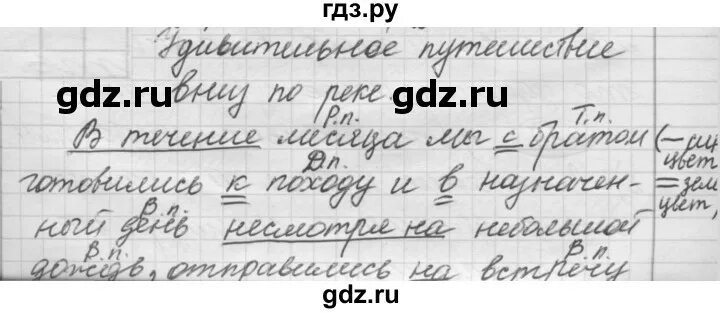 гдз.ру
Удивительное путешествие
gdz.ru gdz.ru
вниз по реке.
Р.п. Т.п.
В течение месяца мы с братом (— си
цвет
Д.п.
готовились к походу и в назначен- = зел
цвет,
В.п.
ный день несмотря на небольшой
gdz.ru gdz.ru
В.п. В.п.
дождь, отправились на встречу
gdz.ru